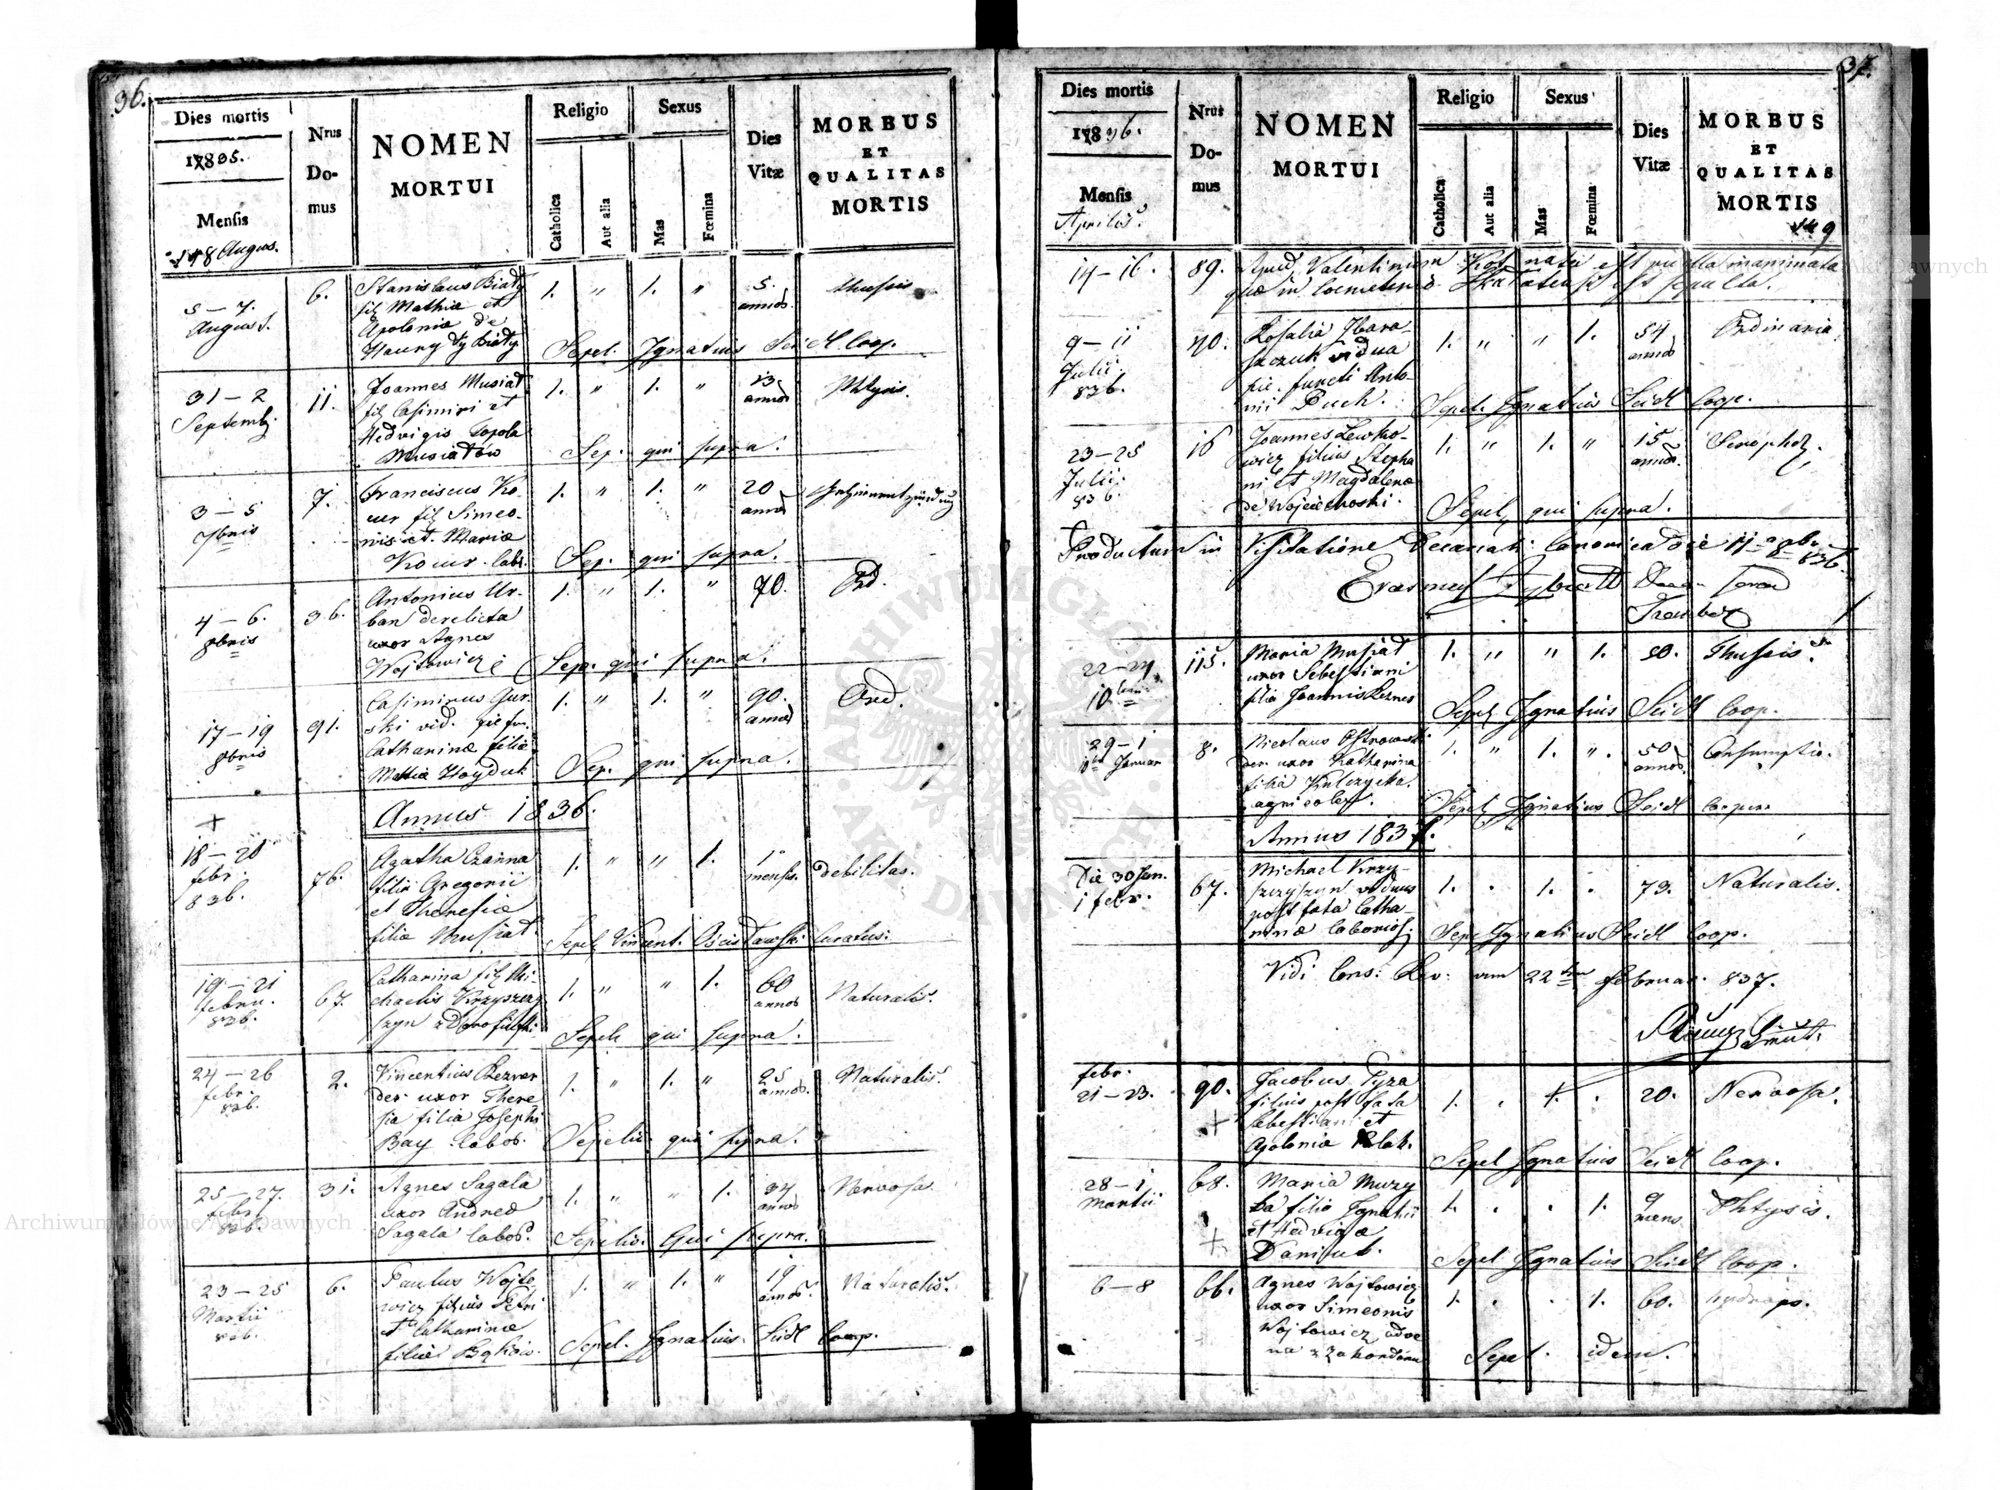 36.
Dies mortis
17835.
Mensis
Augus.
Nrus
Do-
mus
NOMEN
MORTUI
Religio
Catholica
Aut alia
Sexus
Mas
Fœmina
Dies
Vitæ
MORBUS
ET
QUALITAS
MORTIS
5-7.
August.
6.
Stanislaus Biały
fil Mathiæ et
Apolonia de
Biały
1. " 1. "
5.
annos
thussis
Sepel. Ignatius Seidl Coop.
31-2
Septemb.
11.
Joannes Musiał
fil Casimiri et
Hedvigis Topola
Musiałów
1. " 1. "
13
annos
Phtysis.
Sep. qui supra.
3-5
7bris
7.
Franciscus Ko-
cur fil Simeo-
nis et Mariæ
Kocur labr.
1. " 1. "
20
annos
Sep. qui supra.
4-6.
8bris
36.
Antonius Ur-
ban derelicta
uxor Agnes
Wojtowicz
1. " 1. "
70.
Ord.
Sep. qui supra.
17-19
8bris
91.
Casimirus Gur-
ski vid.
Catharinæ filiæ
Mathiæ Hayduk
1. " 1. "
90.
annos
Ord.
Sep. qui supra.
Annus 1836.
+
18-20
febr.
836.
76.
Agatha Czarna
filia Gregorii
et Theresiæ
filiæ Musiał.
1. " " 1.
1
mensis.
debilitas.
Sepel Vincent. Curatus.
19-21
febru.
836.
67.
Catharina fil Mi-
chaelis Krzyszczy
szyn
1. " " 1.
60
annos
Naturalis.
Sepel qui supra.
24-26
febr.
836.
2.
Vincentius Rezner
der. uxor There
sia filia Josephi
Bay. labos.
1. " 1. "
25
annos.
Naturalis.
Sepeliv. qui supra.
25-27.
febr
836.
31.
Agnes Sagala
uxor Andreæ
Sagala labos.
1. " " 1.
34
annos
Nervosa.
Sepeliv. Qui supra.
23-25
Martii
836.
6.
Paulus Wojto
wicz filius Petri
et Catharinæ
filiæ Bąków.
1. " 1. "
19
annos.
Naturalis.
Sepel. Ignatius. Seidl Coop.
37.
Dies mortis
17836.
Mensis
Aprilis.
Nrus
Do-
mus
NOMEN
MORTUI
Religio
Catholica
Aut alia
Sexus
Mas
Fœmina
Dies
Vitæ
MORBUS
ET
QUALITAS
MORTIS
9
14-16.
89.
Apud Valentinum nata est puella inanimata
quæ in Coemeterio est sepulta.
9-11
Julii
836.
40.
Rosalia Zbara-
szczuk vidua
pie. functi Anto-
nii Puch.
1. " " 1.
54
annos
Ordinaria
Sepel. Ignatius Seidl Coop.
23-25
Julii.
836.
16
Joannes Lewko-
wicz filius Stepha
ni et Magdalenæ
de Wojciechoski.
1. " 1. "
15
annos.
Sepel qui supra.
Productum in Visitatione Decanali Canonica
Erasmus
Trembov
22-24
10bris
115.
Maria Musiał
uxor Sebestiani
filia Joannis Rezner
1. " " 1.
50.
Thussis.
Sepel Ignatius Seidl Coop.
29-1
Januar
8.
Nicolaus Ostrowski
der. uxor Katharina
filia Kulczycka.
agricolæ.
1. " 1. ".
50
annos.
Consumptio.
Sepel Ignatius Seidl Cooper.
Annus 1837.
Die 30 Jan.
1 febr.
67.
Michael Krzy-
szczyszyn viduus
post fata Catha-
rinæ laborios.
1. . 1. .
73.
Naturalis.
Sepel Ignatius Seidl Coop.
Vidi Cons: 22 februar. 837.
febr.
21-23.
90.
+
Jacobus Pyza
filius post fata
Sebestiani et
Apolonia Polak.
1. . 1. .
20.
Nervosa.
Sepel Ignatius Seidl Coop.
28-1
Martii
68.
+
Maria Muzy
ka filia Ignatii
et Hedvigæ
Daniluk.
1. . . 1.
9
mens.
Phtysis.
Sepel Ignatius Seidl Coop.
6-8
66.
Agnes Wojtowicz
uxor Simeonis
Wojtowicz adve
na z zakordonu
1. . . 1.
60.
hydrops.
Sepel. idem.
ARCHIWUM GŁÓWNE AKT DAWNYCH
Archiwum Główne Akt Dawnych